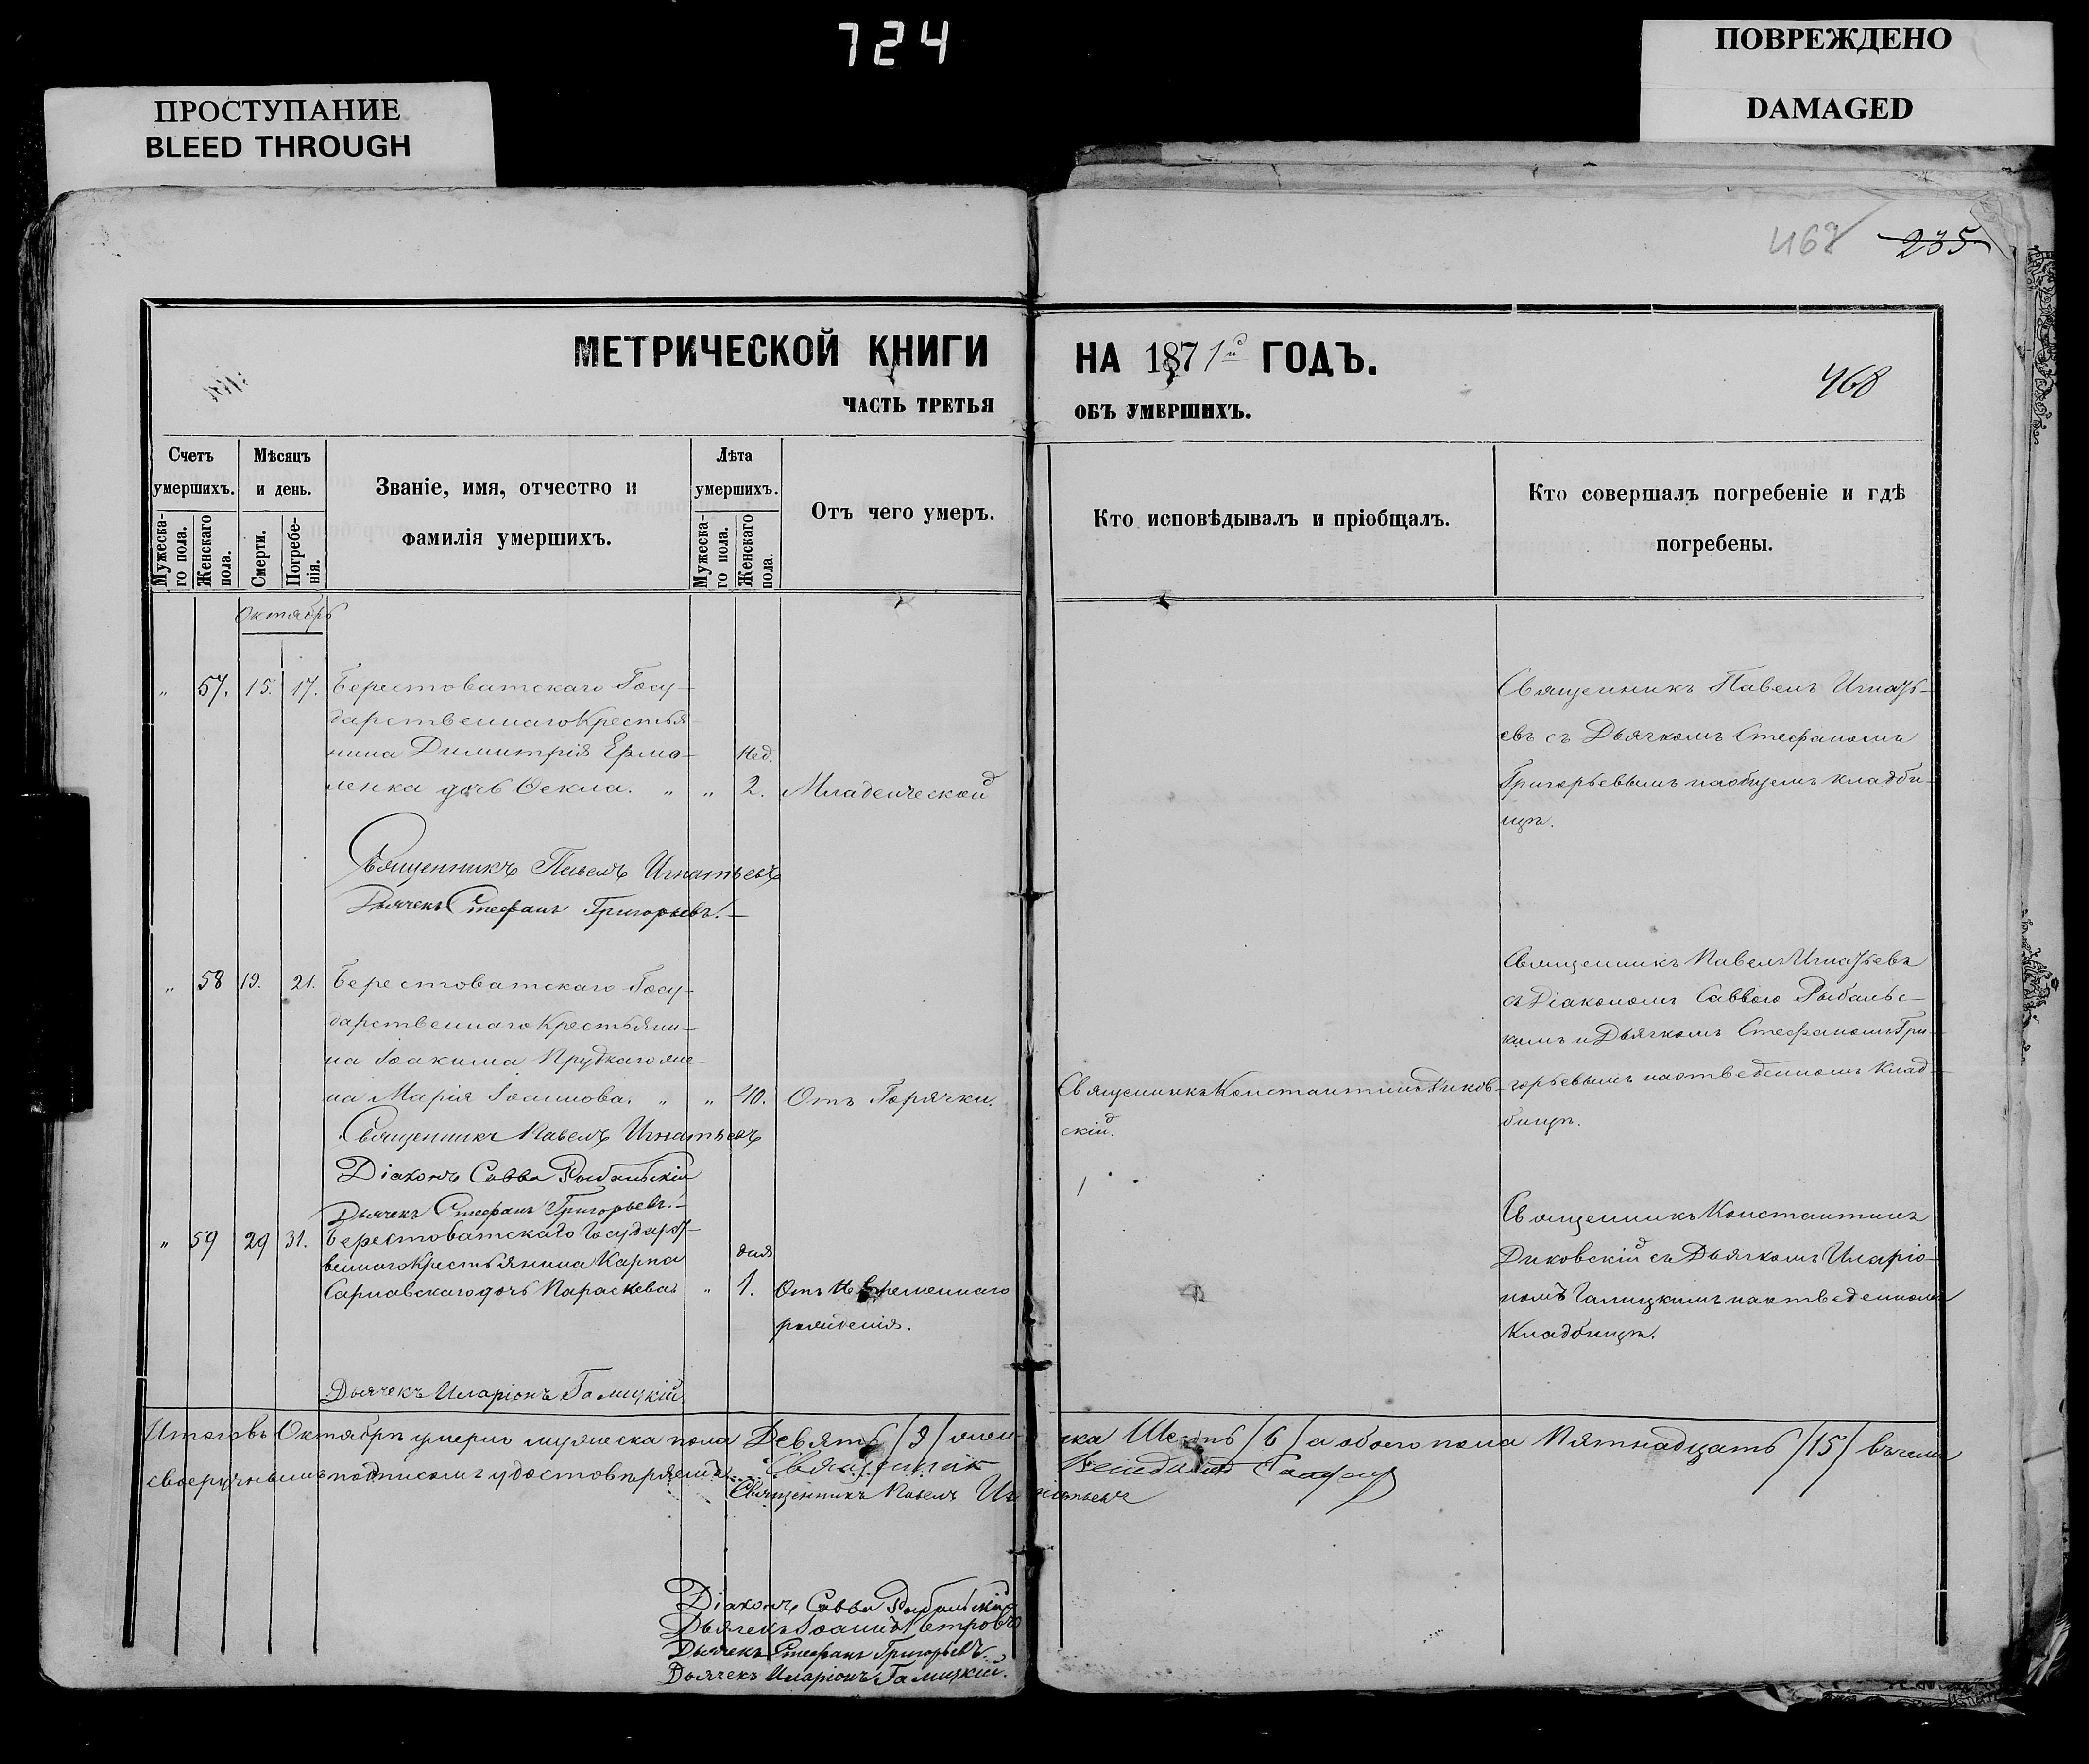 724
ПОВРЕЖДЕНО
DAMAGED
ПРОСТУПАНИЕ
BLEED THROUGH
467 235
МЕТРИЧЕСКОЙ КНИГИ НА 1871й ГОДЪ.
468
ЧАСТЬ ТРЕТЬЯ ОБЪ УМЕРШИХЪ.
Счетъ умершихъ.
Мужеска-го пола.
Женскаго пола.
Мѣсяцъ и день.
Смерти.
Погребе-нія.
Званіе, имя, отчество и
фамилія умершихъ.
Лѣта умершихъ.
Мужеска-го пола.
Женскаго пола.
Отъ чего умеръ.
Кто исповѣдывалъ и пріобщалъ.
Кто совершалъ погребеніе и гдѣ
погребены.
Октябрь
" 57. 15. 17. Берестоватскаго Госу-
дарственнаго Крестья-
нина Димитрія Ермо-
ленка дочь Ѳекла. " " нед. 2. Младенческой
Священникъ Павелъ Игнать-
евъ съ Дьячкомъ Стефаномъ
Григорьевымъ на общемъ кладби-
щѣ.
Священникъ Павелъ Игнатьевъ
Дьячекъ Стефанъ Григорьевъ.
" 58 19. 21. Берестоватскаго Госу-
дарственнаго Крестьяни-
на Іоакима Прудкаго же-
на Марія Іоаннова. " " 40. Отъ Горячки.
Священникъ Константинъ Диков-
скій.
Священникъ Павелъ Игнатьевъ
съ Діакономъ Саввою Рыбальс-
кимъ и Дьячкомъ Стефаномъ Гри-
горьевымъ на отведенномъ Клад-
бищѣ.
Священникъ Павелъ Игнатьевъ
Діаконъ Савва Рыбальскій
Дьячекъ Стефанъ Григорьевъ.
" 59 29 31. Берестоватскаго Государст-
веннаго Крестьянина Карпа
Сарнавскаго дочь Параскева " дня 1. Отъ Невременнаго
рожденія.
Священникъ Константинъ
Диковскій съ Дьячкомъ Иларіо-
номъ Галицкимъ на отведенномъ
Кладбищѣ.
Дьячекъ Иларіонъ Галицкій
Итого въ Октябрѣ умерло мужеска пола Девять /9/ женска Шесть /6/ а обоего пола Пятнадцать /15/ въ чемъ
своеручнымъ подписомъ удостовѣряемъ. Священник
Священникъ Павелъ Игнатьевъ
Діаконъ Савва Рыбальскій
Дьячекъ Іоаннъ Петровъ
Дьячекъ Стефанъ Григорьевъ.
Дьячекъ Иларіонъ Галицкій.